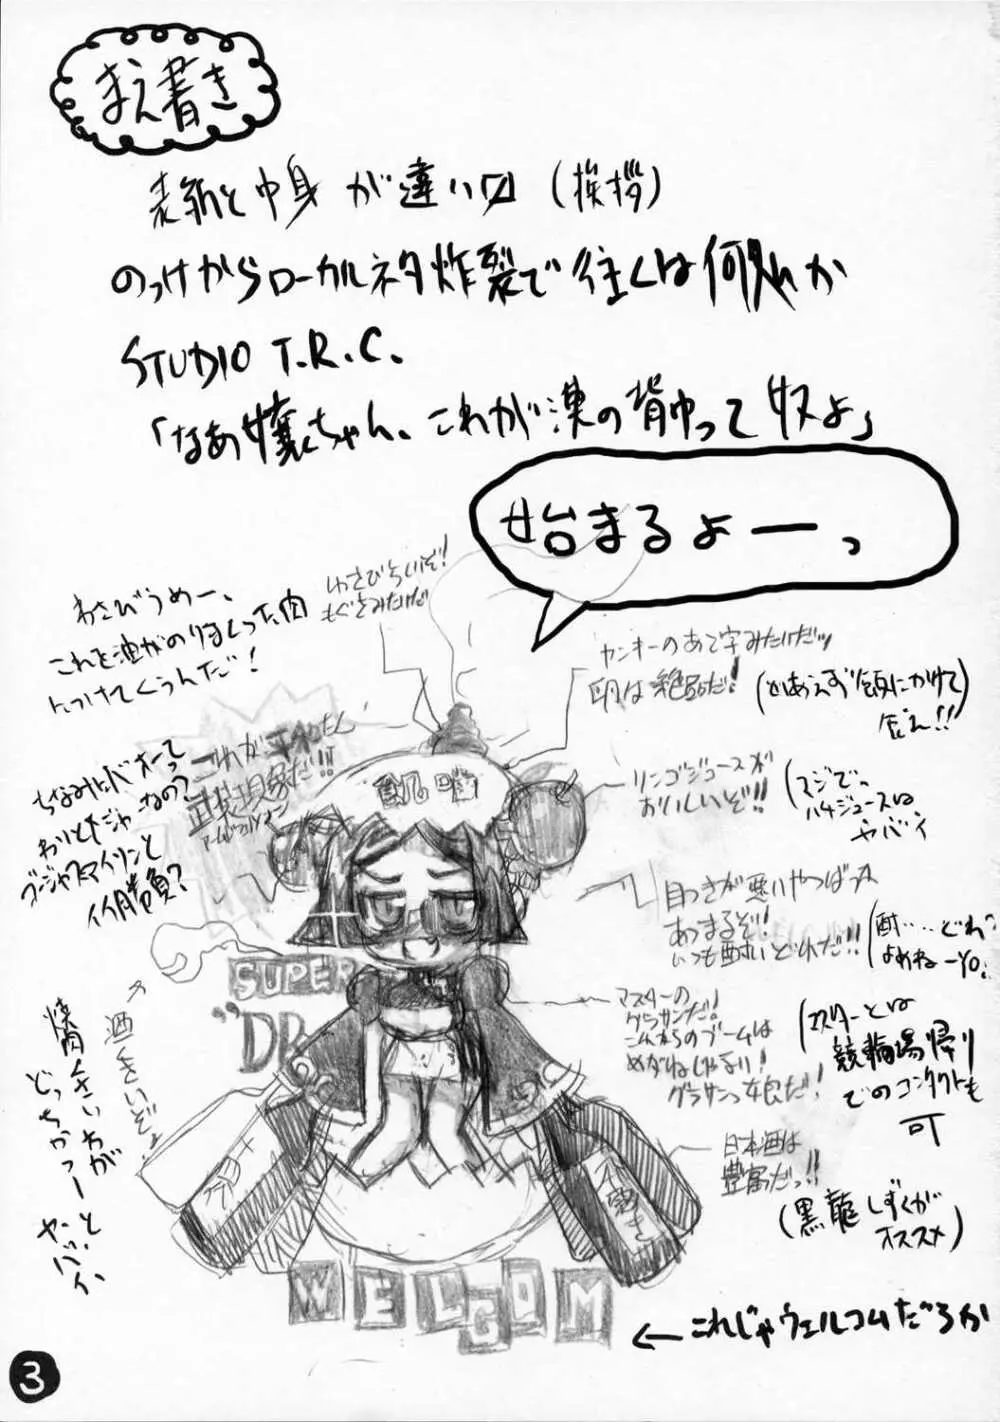 まえ書き
表紙と中身が違い〼(挨拶)
のっけからローカルネタ炸裂で往くは何処か
STUDIO T.R.C.
「なあ嬢ちゃん、これが漢の背中って奴よ」
始まるよーっ
わさびらいいぞ!
もぐさみたいだ
わさびうめー、
これを油がのりまくった肉
につけてくうんだ!
ヤンキーのあて字みたいだッ
卵は絶品だ!
(とりあえず飯にかけて
食え!!)
ちなみにバオーって
わりとだジャなの?
ゴージャスアイリンと
イイ勝負?
これが平和たん
武装現象だ!!!
アームドフェノメノン
リンゴジュースが
おいしいぞ!!
(マジで。
ハチジュースは
ヤバイ
目つきが悪いやつばっか
あつまるぞ!
いつも酔いどれだ!!
(酎……どれ?
よめねーYO.
SUPER
"DR
マスターの
グラサンだ!
これからのブームは
めがねじゃない!
グラサンっ娘だ!
(マスターとは
競輪場帰り
でのコンタクトも
可
酒くさいぞ。
焼肉くさい方が
どっちかっつーと、
ヤバイ
日本酒は
豊富だっ!!
(黒龍しずくが
オススメ)
WELCOM
←これじゃウェルコムだろか
3